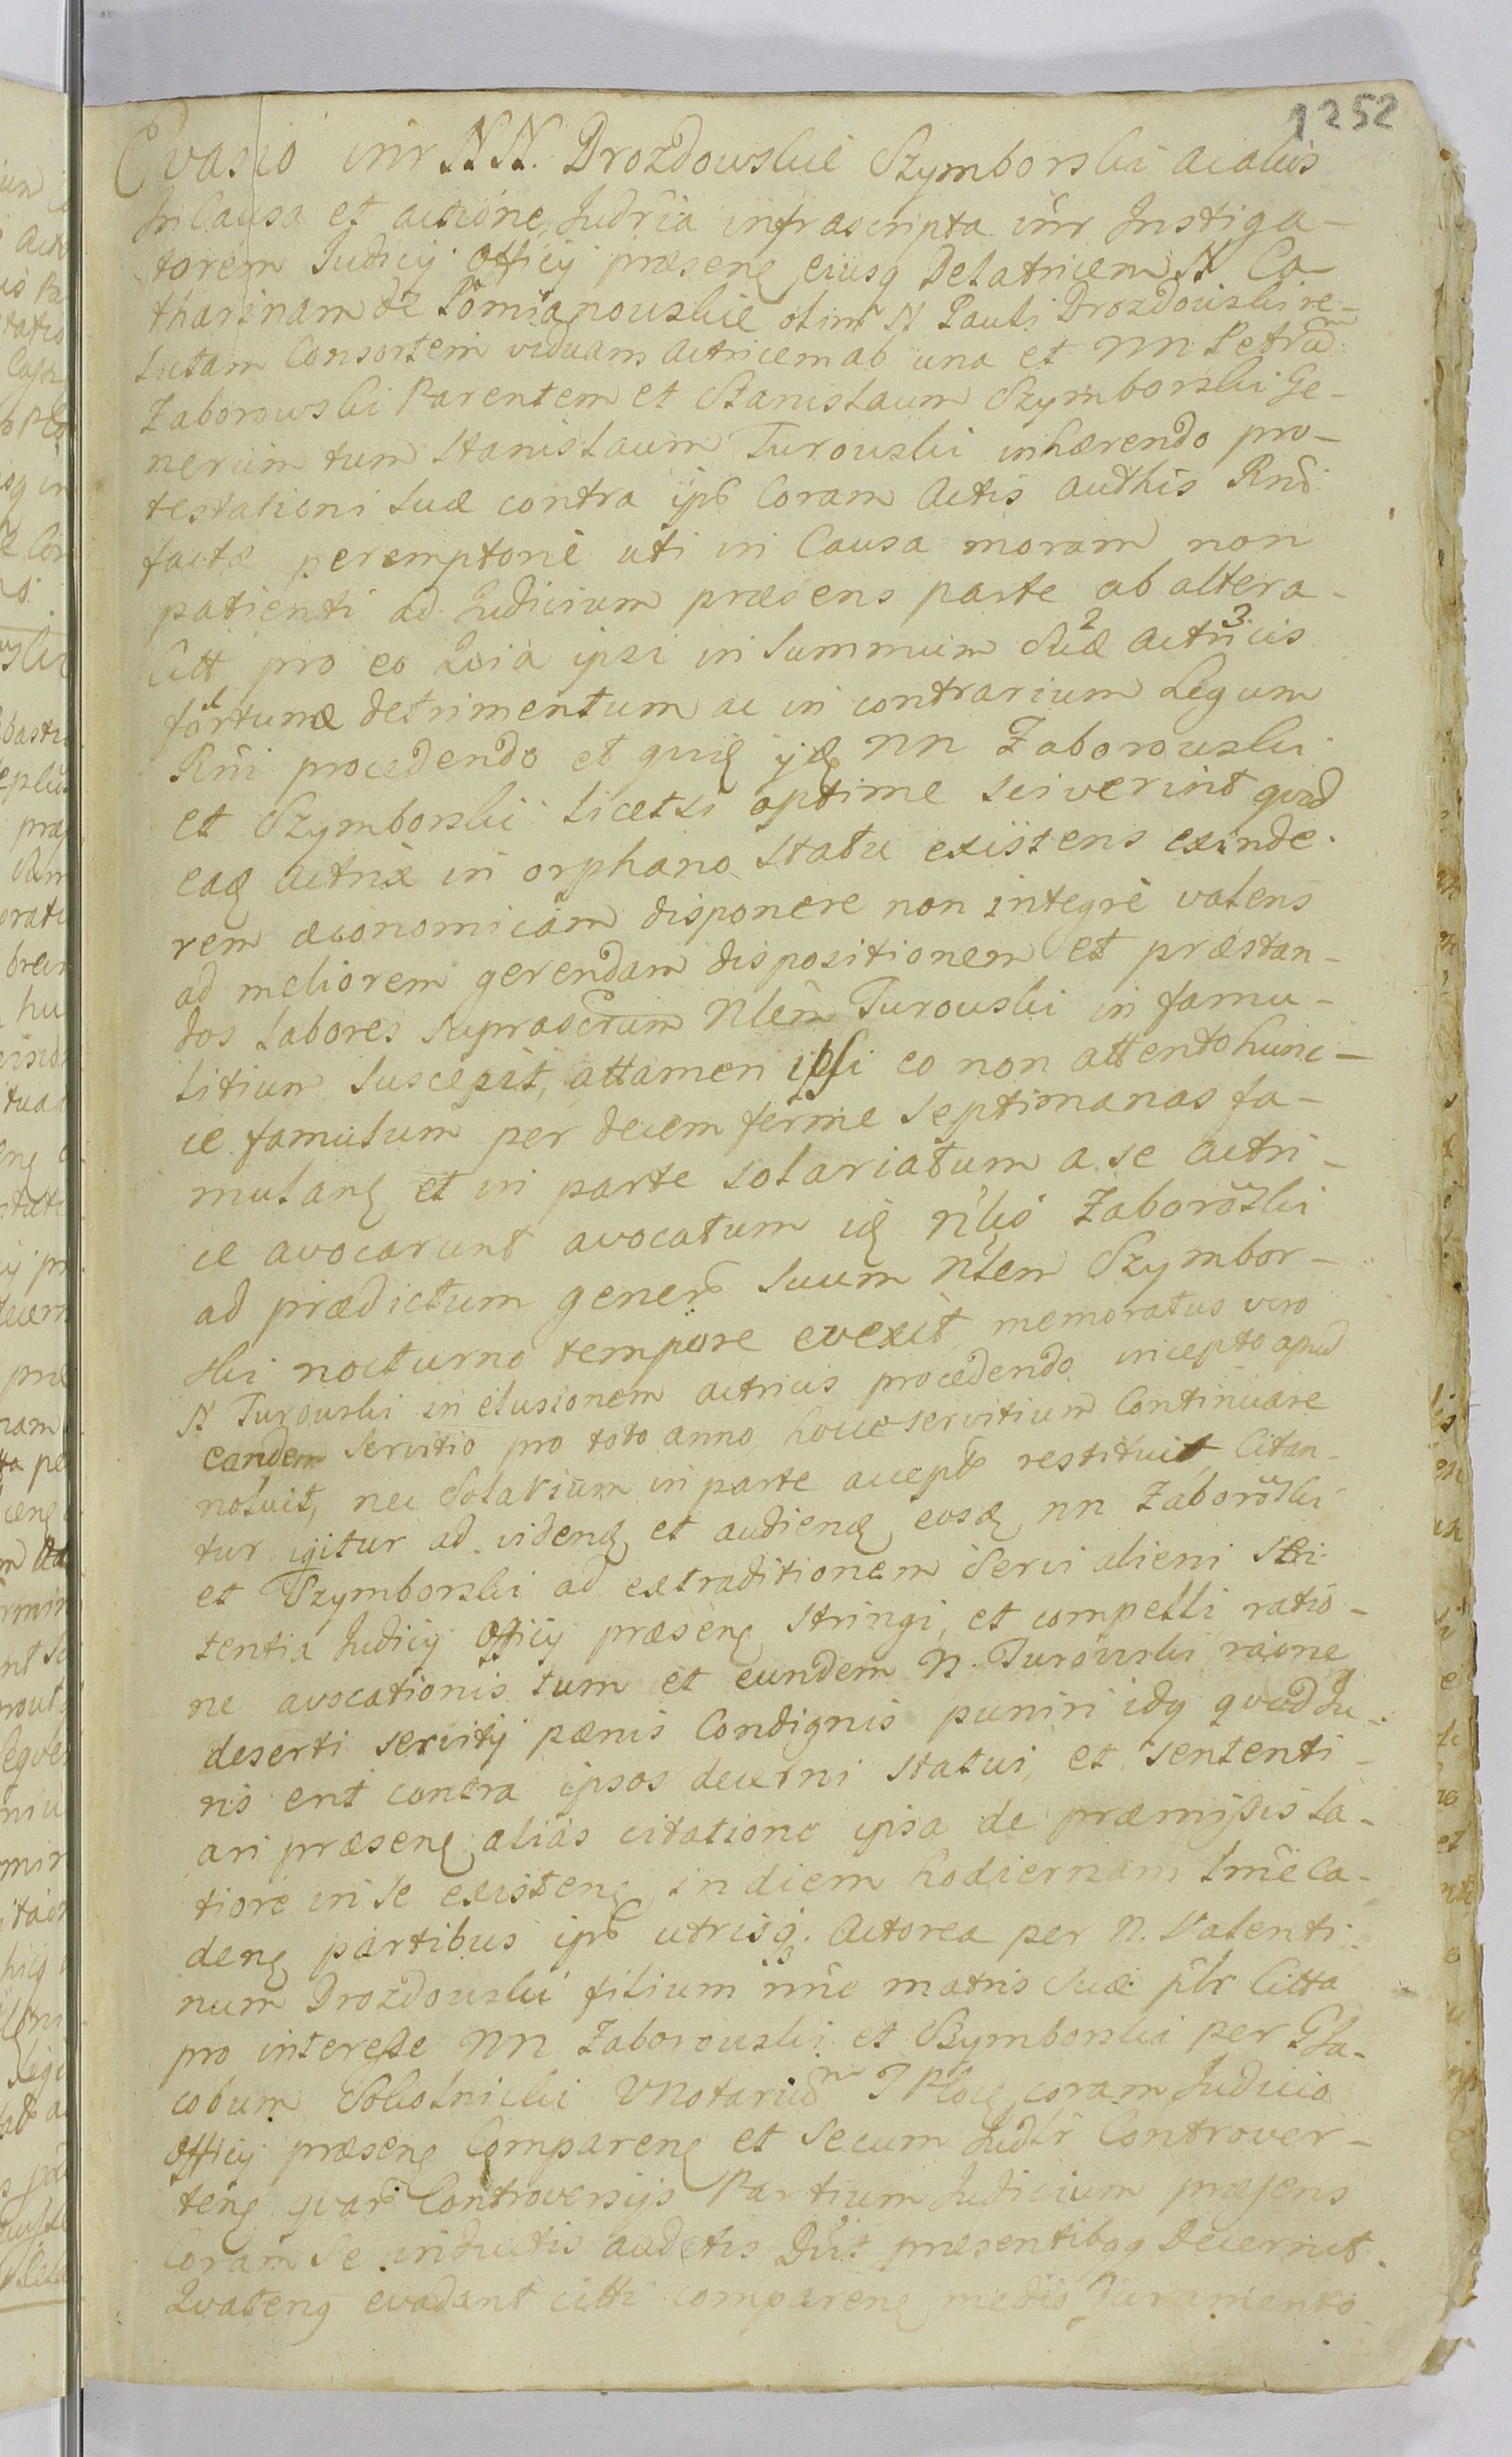 1252
Evasio inr NN. Drozdowskie Szymborski ac alios
In Causa et actione Judria infrascripta inr Instiga-
torem Judicij Officij præsenς ejusq Delatricem N Ca-
tharinam de Łomianowskie olim N Pauli Drozdowski re-
lictam Consortem viduam Actricem ab una et NN Petrum
Zaborowski Parentem et Stanislaum Szymborski Ge-
nerum tum Stanislaum Turowski inhærendo pro-
testationi suæ contra ips Coram Actis authis Rnd
factæ peremptorie uti in Causa moram non
patienti ad Judicium præsens parte ab altera
Citt pro eo Quia ipsi in summum suæ 2 actricis 3
fortunæ detrimentum ac in contrarium Legum
Rni procedendo et quiς ijς NN Zaborowski
et Szymborski licet si optime sciverint quod
eaς Actrix in orphano statu existens exinde
rem œconomicam disponere non integrè valens
ad meliorem gerendam dispositionem et præstan-
dos labores suprascrum Nlem Turowski in famu-
litium suscepit, attamen ipsi eo non attento hunc-
ce famulum per decem ferme septimanas fa-
mulanς et in parte solariatum a se actri-
ce avocarunt avocatum iς Nlis Zaborowski
ad prædictum generum suum Nlem Szymbor-
ski nocturno tempore evexit memoratus vero
N Turowski in elusionem actricis procedendo incepto apud
eandem servitio pro toto anno hocce servitium Continuare
noluit, nec Solarium in parte accept restituit, Citan-
tur igitur ad videnς et audienς eosς NN Zaborowski
et Szymborski ad extraditionem Servi alieni sen-
tentia Judicij Officij præsenς stringi, et compelli ratio-
ne avocationis tum et eundem N. Turowski raione
deserti servitij pænis Condignis puniri idq quod Ju-
ris erit contra ipsos decerni statui, et sententi-
ari præsenς aliàs citatione ipsa de præmissis la-
tiore in se existenς in diem hodiernam lnie ca-
denς partibus ips utrisq. Actorea per N. Valenti-
num Drozdowski filium nne matris suæ plr Citta
pro interesse NN Zaborowski et Szymborski per G Ja-
cobum Sokolnicki VNotarium T Ploς coram Judicio
Officij præsenς Comparenς et secum Judlr Controver-
tenς quar Controversijs Partium Judicium præsens
Coram Se inductis audetis Dnt præsentibqq Decernit
Quatenς evadant citti comparenς medio Juramento